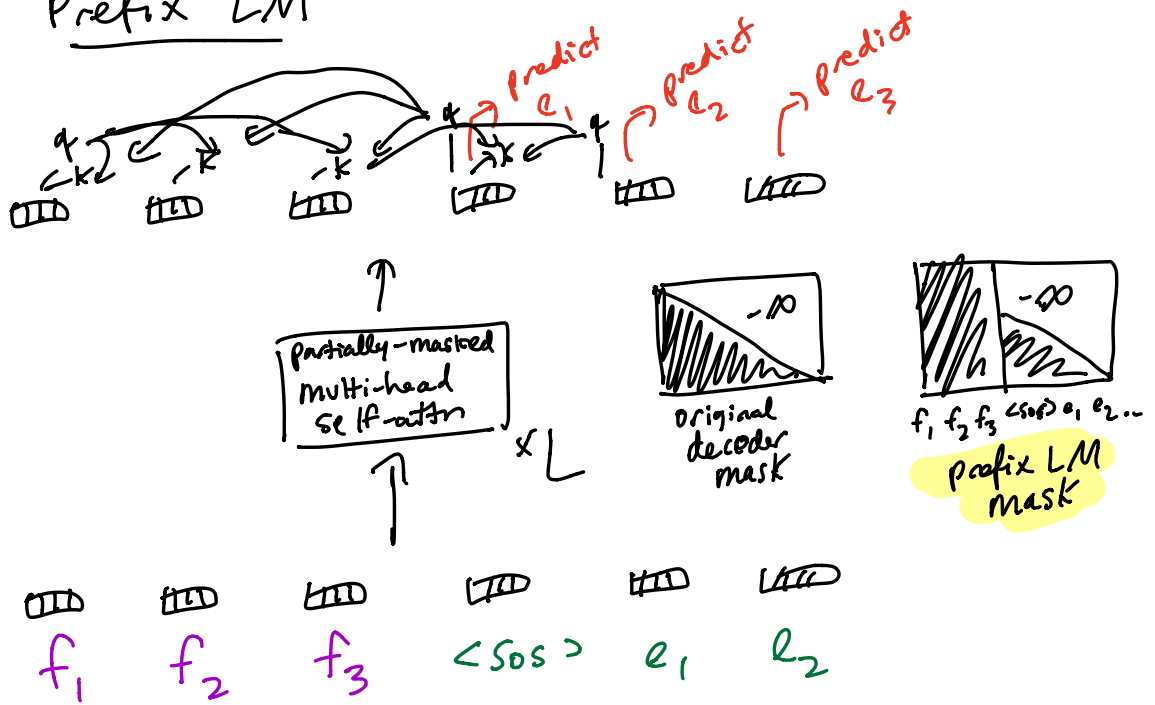 Prefix LM
predict e₁
predict e₂
predict e₃
q
q
q
k
k
k
k
partially-masked
multi-head
self-attn
x L
-∞
original
decoder
mask
-∞
f₁ f₂ f₃ <sos> e₁ e₂ ...
prefix LM
mask
f₁ f₂ f₃ <sos> e₁ e₂